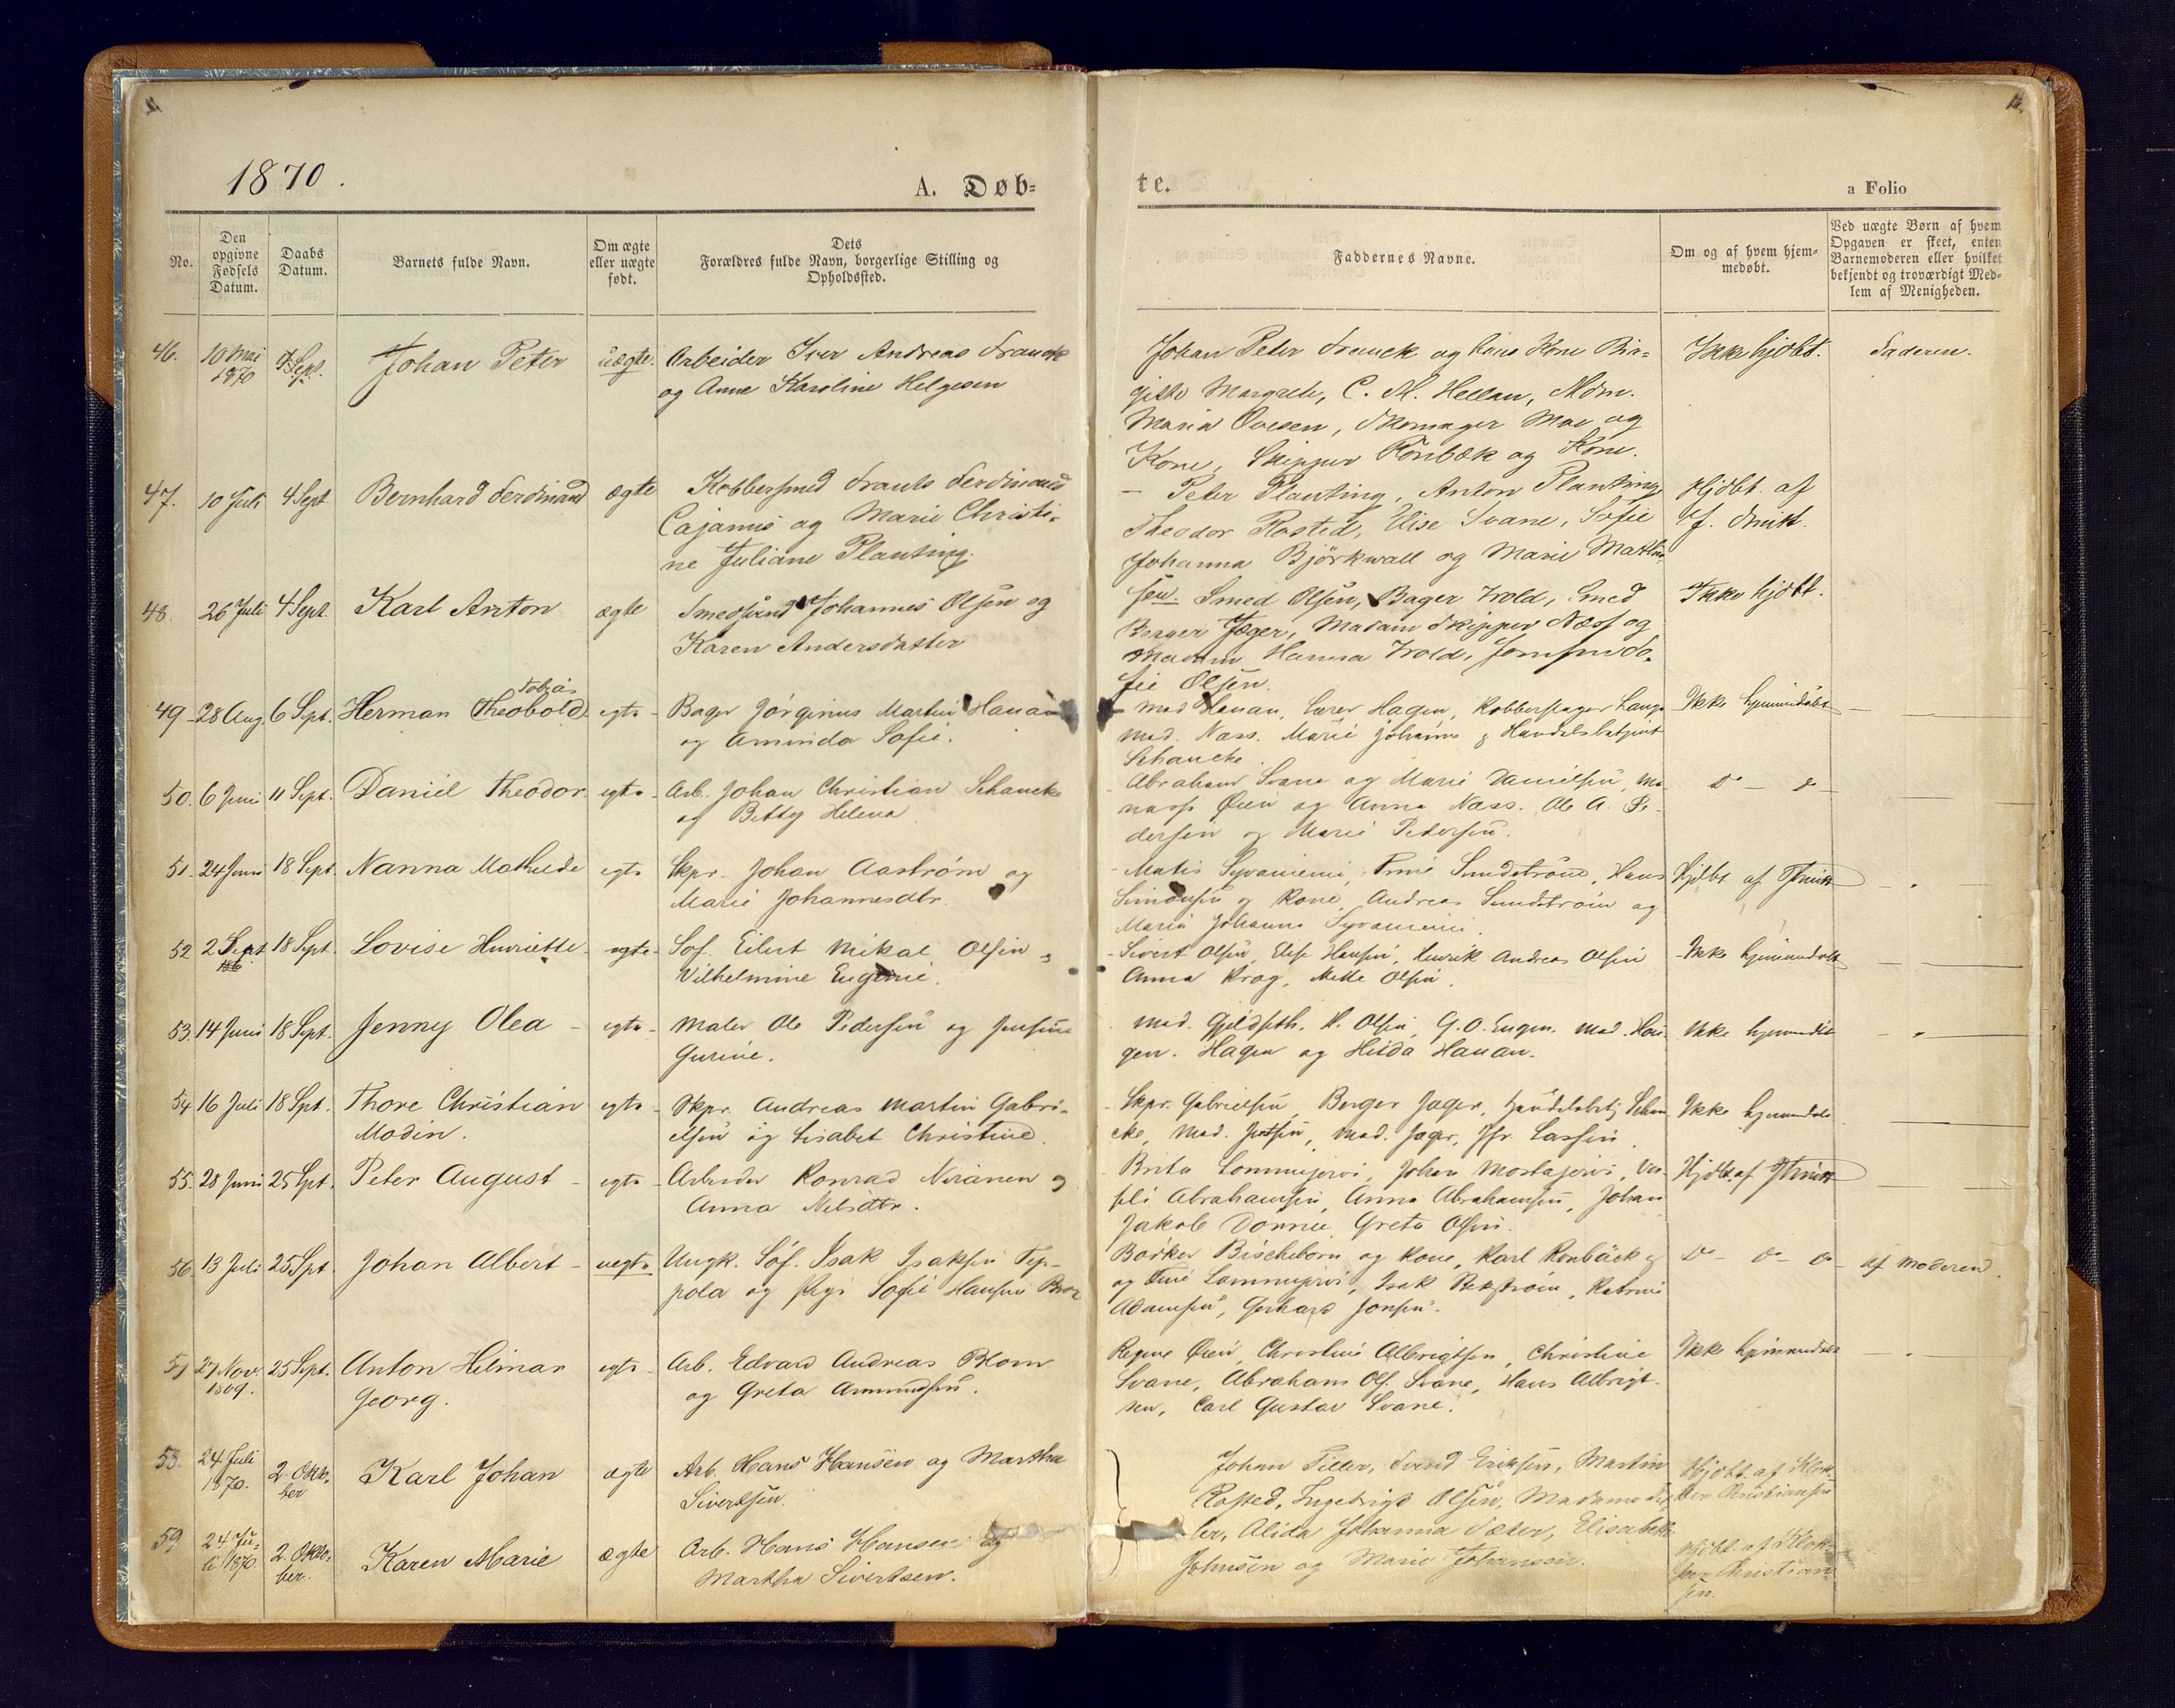 1870.
A. Døb=
te.
a Folio
No.
Den opgivne Fødsels Datum.
Daabs Datum.
Barnets fulde Navn.
Om ægte eller uægte født.
Dets Forældres fulde Navn, borgerlige Stilling og Opholdssted.
Faddernes Navne.
Om og af hvem hjemmedøbt.
Ved uægte Børn af hvem Opgaven er skeet, enten Barnemoderen eller hvilket bekjendt og troværdigt Medlem af Menigheden.
46. 10 Mai 1870 4 Sept. Johan Peter uægte. Arbeider Iver Andreas Franck
og Anne Karoline Helgesen
Johan Peter Franck og hans Kone Bir=
gitte Margrete, C. M. Hellan, Mdm.
Maria Ovesen, Skomager Moe og
Kone, Skipper Rönbæk og Kone.
Ikke hjdbt.
Faderen.
47. 10 Juli 4 Sept. Bernhard Ferdinand ægte Kobbersmed Frants Ferdinand
Cajanus og Marie Christi=
ne Juliane Planting.
– Peter Planting, Anton Planting
Theodor Rosted, Elise Svane, Sofie
Johanna Björkwall og Marie Mathi
sen.
Hjdbt. af
Jf. Smitt.
48. 26 Juli 4 Sept. Karl Anton ægte Smedsvend Johannes Olsen og
Karen Andersdatter
Smed Olsen, Bager Wold, Smed
Berger Jæger, Madam Skipper Næss og
Madam Hanna Wold, Jomfru So=
fie Olsen.
Ikke hjdbt.
49 28 Aug. 6 Sept. Herman Theobold Tobias egte Bager Jörginus Martin Hanan
og Aminda Sofie.
Mad Hanan, Lærer Hagen, Kobberslager Lange
Mad. Næss. Marie Johanne & Handelsbetjent
Schancke.
Ikke hjemmedöbt
50. 6 Juni 11 Sept. Daniel Theodor egte Arb. Johan Christian Schancke
og Betty Helena
Abraham Svane og Marie Danielsen, Ma
nass Øien og Anna Næss. Ole A. Pe
dersen og Marie Pedersen.
51. 24 Juni 18 Sept. Nanna Mathilde egte Skpr. Johan Aaström og
Marie Johannesdtr.
Matis Syvaniemi, Sundström, Hans
Simonsen og Kone, Andreas Sundström og
Maria Johanna Syvaniemi.
Hjdbt af Smitt
52 2 Sept 18 Sept. Lovise Henriette egte Søf. Eilert Mikal Olsen &
Wilhelmine Eugenie.
Sivert Olsen, Elise Hansen, Henrik Andreas Olsen
Anna Krog, Mette Olsen.
Ikke hjemmedöbt
53. 14 Juni 18 Sept. Jenny Olea egte Maler Ole Pedersen og Jensine
Gurine.
Mad. Gjeldseth, H. Olsen, G. O. Eugen. Mad. Hau
gen. Hagen og Hilda Hanan.
Ikke hjemmedöbt
54 16 Juli 18 Sept. Thore Christian
Modin.
egte Skpr. Andreas Martin Gabri=
elsen og Lisabet Christine.
Skpr. Gabrielsen, Berger Jæger, Handelsbetj Schan
cke, Mad. Jentsen, Mad. Jæger, Jfr. Lassen
Ikke hjemmedöbt
55. 28 Juni 25 Spt. Peter August egte Arbeider Konrad Niranen &
Anna Nilsdtr.
Brita Lommijervi, Johan Mostajervi,
Abrahamsen, Anna Abrahamsen, Johan
Jakob Greta Olsen.
Hjdbt. af Smitt
56 13 Juli 25 Spt. Johan Albert uegte Ungk. Söf. Isak Isaksen Tep=
pola og Sofie Hansen
og Kone, Karl Rönbäck &
og Lommijervi, Isak
Adamsen, Gerhard Jonsen.
af Moderen.
57 27 Nov. 1869. 25 Sept. Anton Hilmar
Georg.
egte Arb. Edvard Andreas Blom
og Greta Amundsen.
Regine Øien, Christine Albrigtsen, Christine
Svane, Abraham Ols. Svane, Hans Albrigt=
sen, Carl Gustav Svane.
Ikke hjemmedöbt
58. 24 Juli 1870. 2. Okto=
ber Karl Johan ægte Arb. Hans Hansen og Martha
Sivertsen.
Johan Tiller, Svend Eriksen, Martin
Rosted, Ingebrigt Olsen, Madame Til
ler, Alida Johanna Sæter, Elisabeth
Johnsen og Marie Johansen.
Hjdbt. af Klok=
ker Christiansen
59 24 Ju=
li 1870 2. Okto=
ber. Karen Marie ægte Arb. Hans Hansen og
Martha Sivertsen.
Hjdbt. af Klok=
ker Christian
sen.